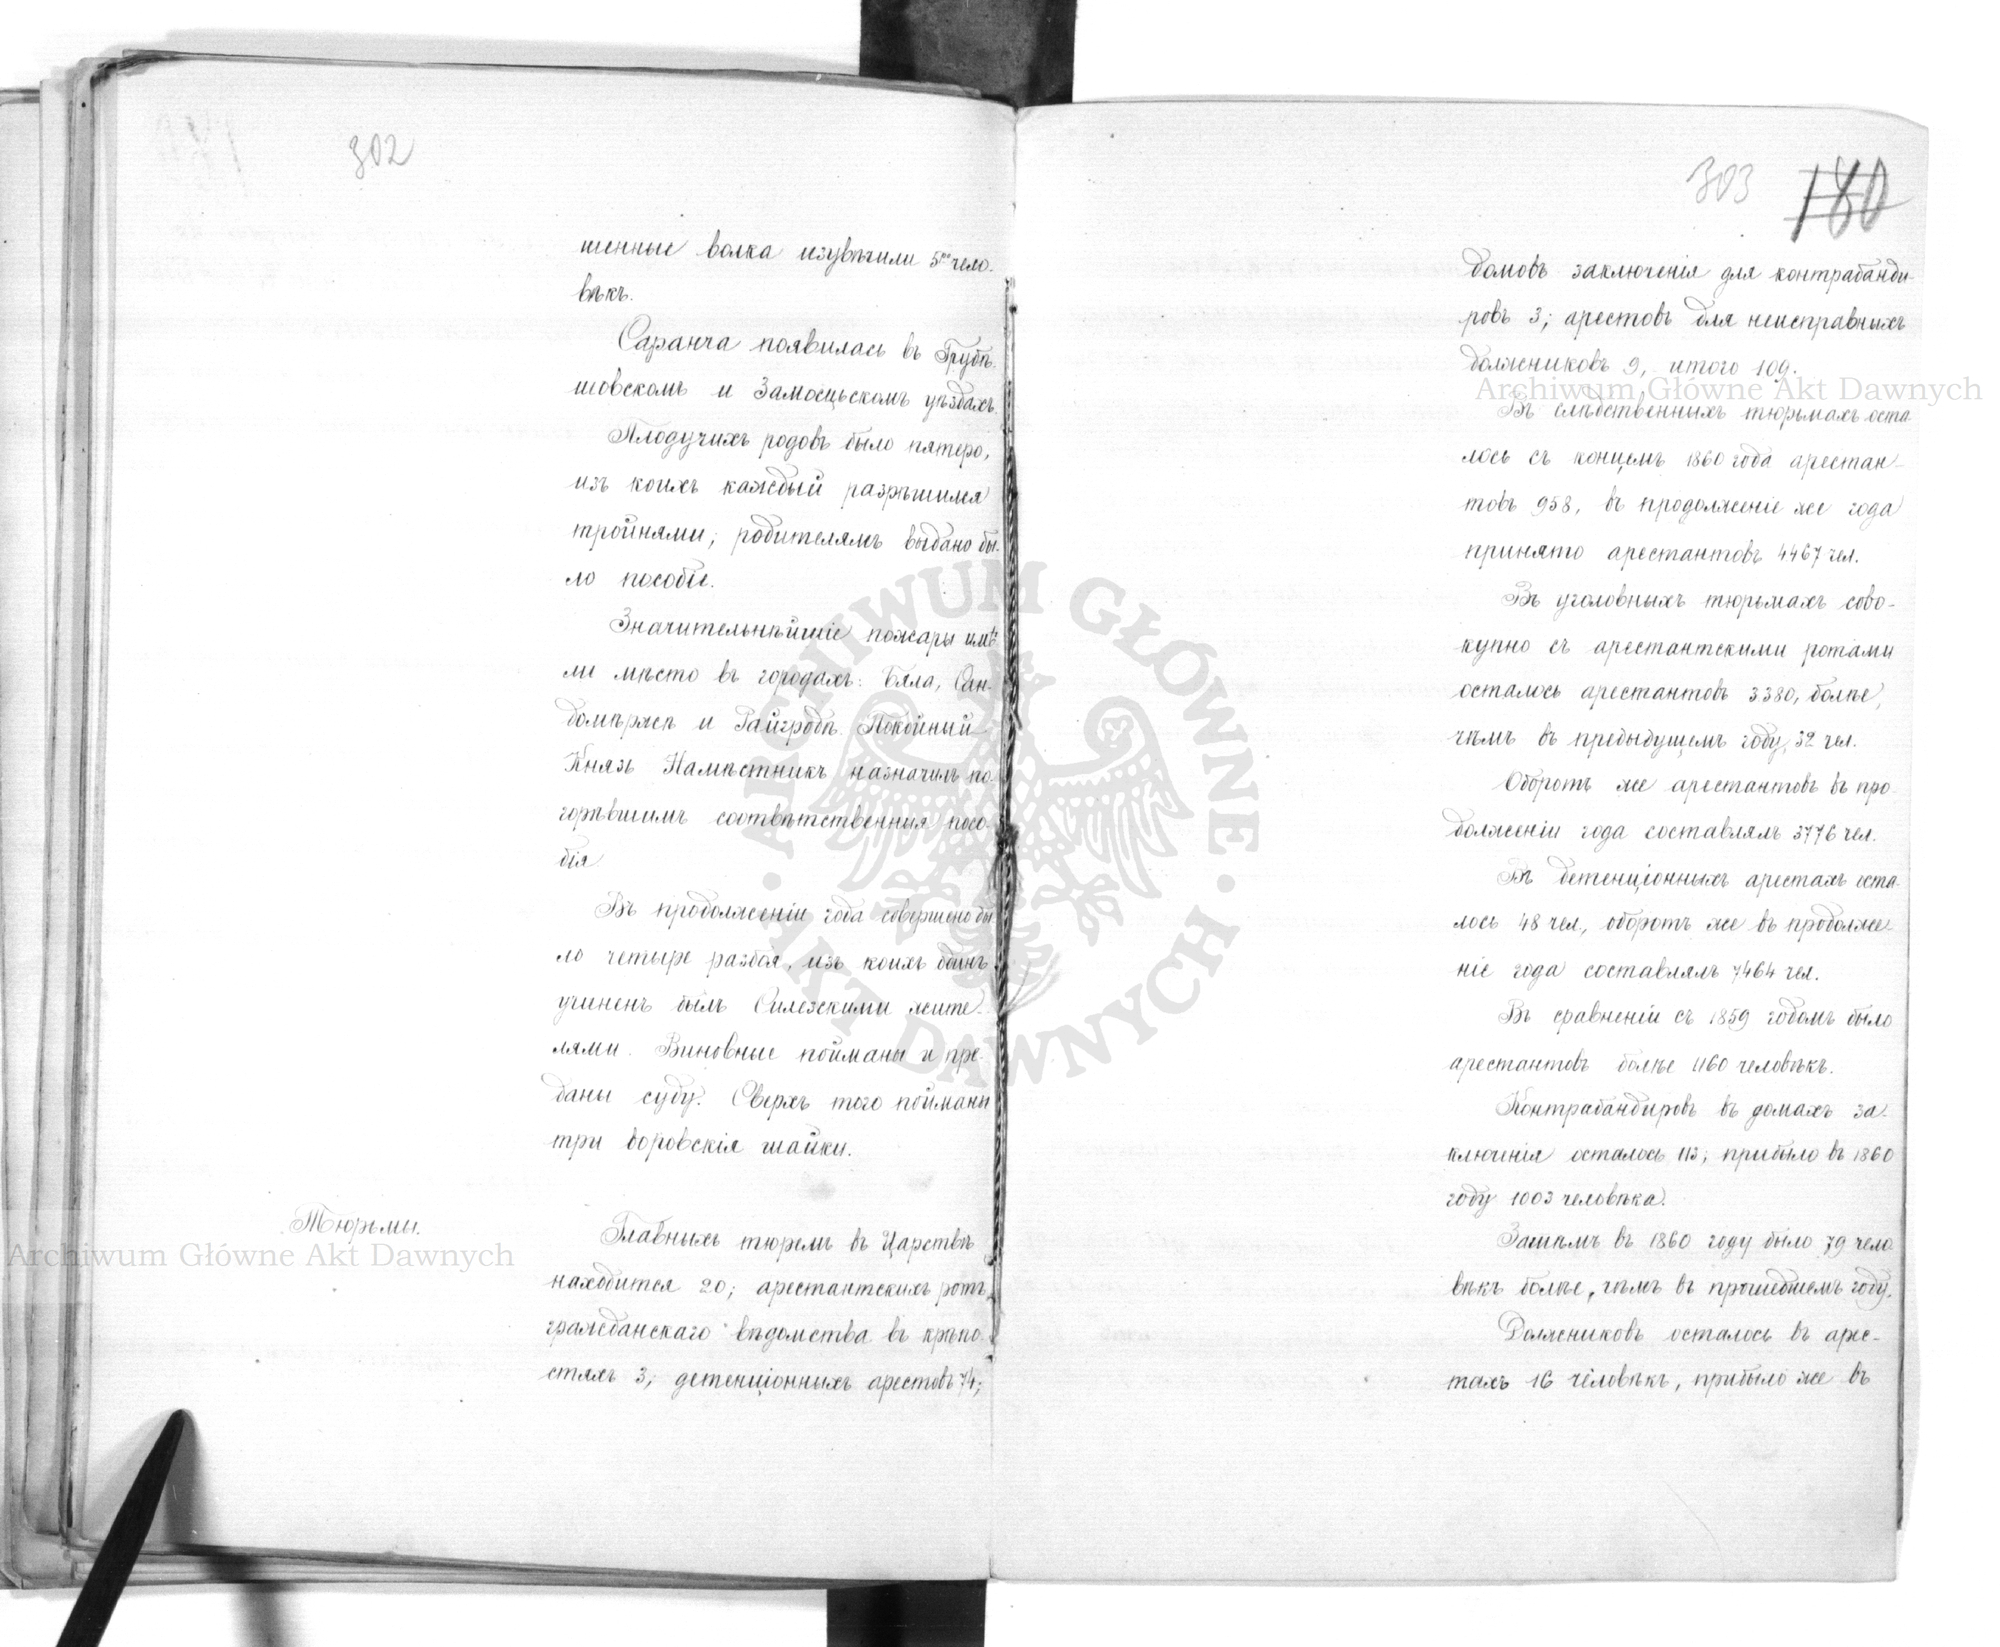 302
шенные волка изувѣчили 5ро чело-
вѣкъ.
Саранча появилась въ Грубѣ-
шовскомъ и Замосцьскомъ уѣздахъ.
Плодучихъ родовъ было пятеро,
изъ коихъ каждый разрѣшился
тройнями; родителямъ выдано бы-
ло пособіе.
Значительнѣйшіе пожары имѣ-
ли мѣсто въ городахъ: Бяла, Сан-
домѣржѣ и Райгродѣ. Покойный
Князь Намѣстникъ назначилъ по-
горѣвшимъ соотвѣтственныя посо-
бія
Въ продолженіи года совершено бы
ло четыре разбоя, изъ коихъ одинъ
учиненъ былъ Силезскими жите-
лями. Виновные пойманы и пре-
даны суду. Сверхъ того пойманы
три воровскія шайки.
Тюрьмы.
Главныхъ тюремъ въ Царствѣ
находится 20; арестантскихъ ротъ
гражданскаго вѣдомства въ крѣпо-
стяхъ 3; детенціонныхъ арестовъ 74;
303 180
домовъ заключенія для контрабанди-
ровъ 3; арестовъ для неисправныхъ
должниковъ 9, итого 109.
Въ слѣдственныхъ тюрьмахъ оста-
лось съ концемъ 1860 года арестан-
товъ 958, въ продолженіе же года
принято арестантовъ 4467 чел.
Въ уголовныхъ тюрьмахъ сово-
купно съ арестантскими ротами
осталось арестантовъ 3380, болѣе,
чѣмъ въ предыдущемъ году, 32 чел.
Оборотъ же арестантовъ въ про
долженіи года составлялъ 3776 чел.
Въ детенціонныхъ арестахъ оста-
лось 48 чел, оборотъ же въ продолже
ніе года составлялъ 7464 чел.
Въ сравненіи съ 1859 годомъ было
арестантовъ болѣе 1160 человѣкъ.
Контрабандировъ въ домахъ за-
ключенія осталось 113; прибыло въ 1860
году 1003 человѣка.
Затѣмъ въ 1860 году было 79 чело
вѣкъ болѣе, чѣмъ въ прошедшемъ году.
Должниковъ осталось въ аре-
тахъ 16 человѣкъ, прибыло же въ
Archiwum Główne Akt Dawnych
Archiwum Główne Akt Dawnych
ARCHIWUM GŁÓWNE · AKT DAWNYCH ·